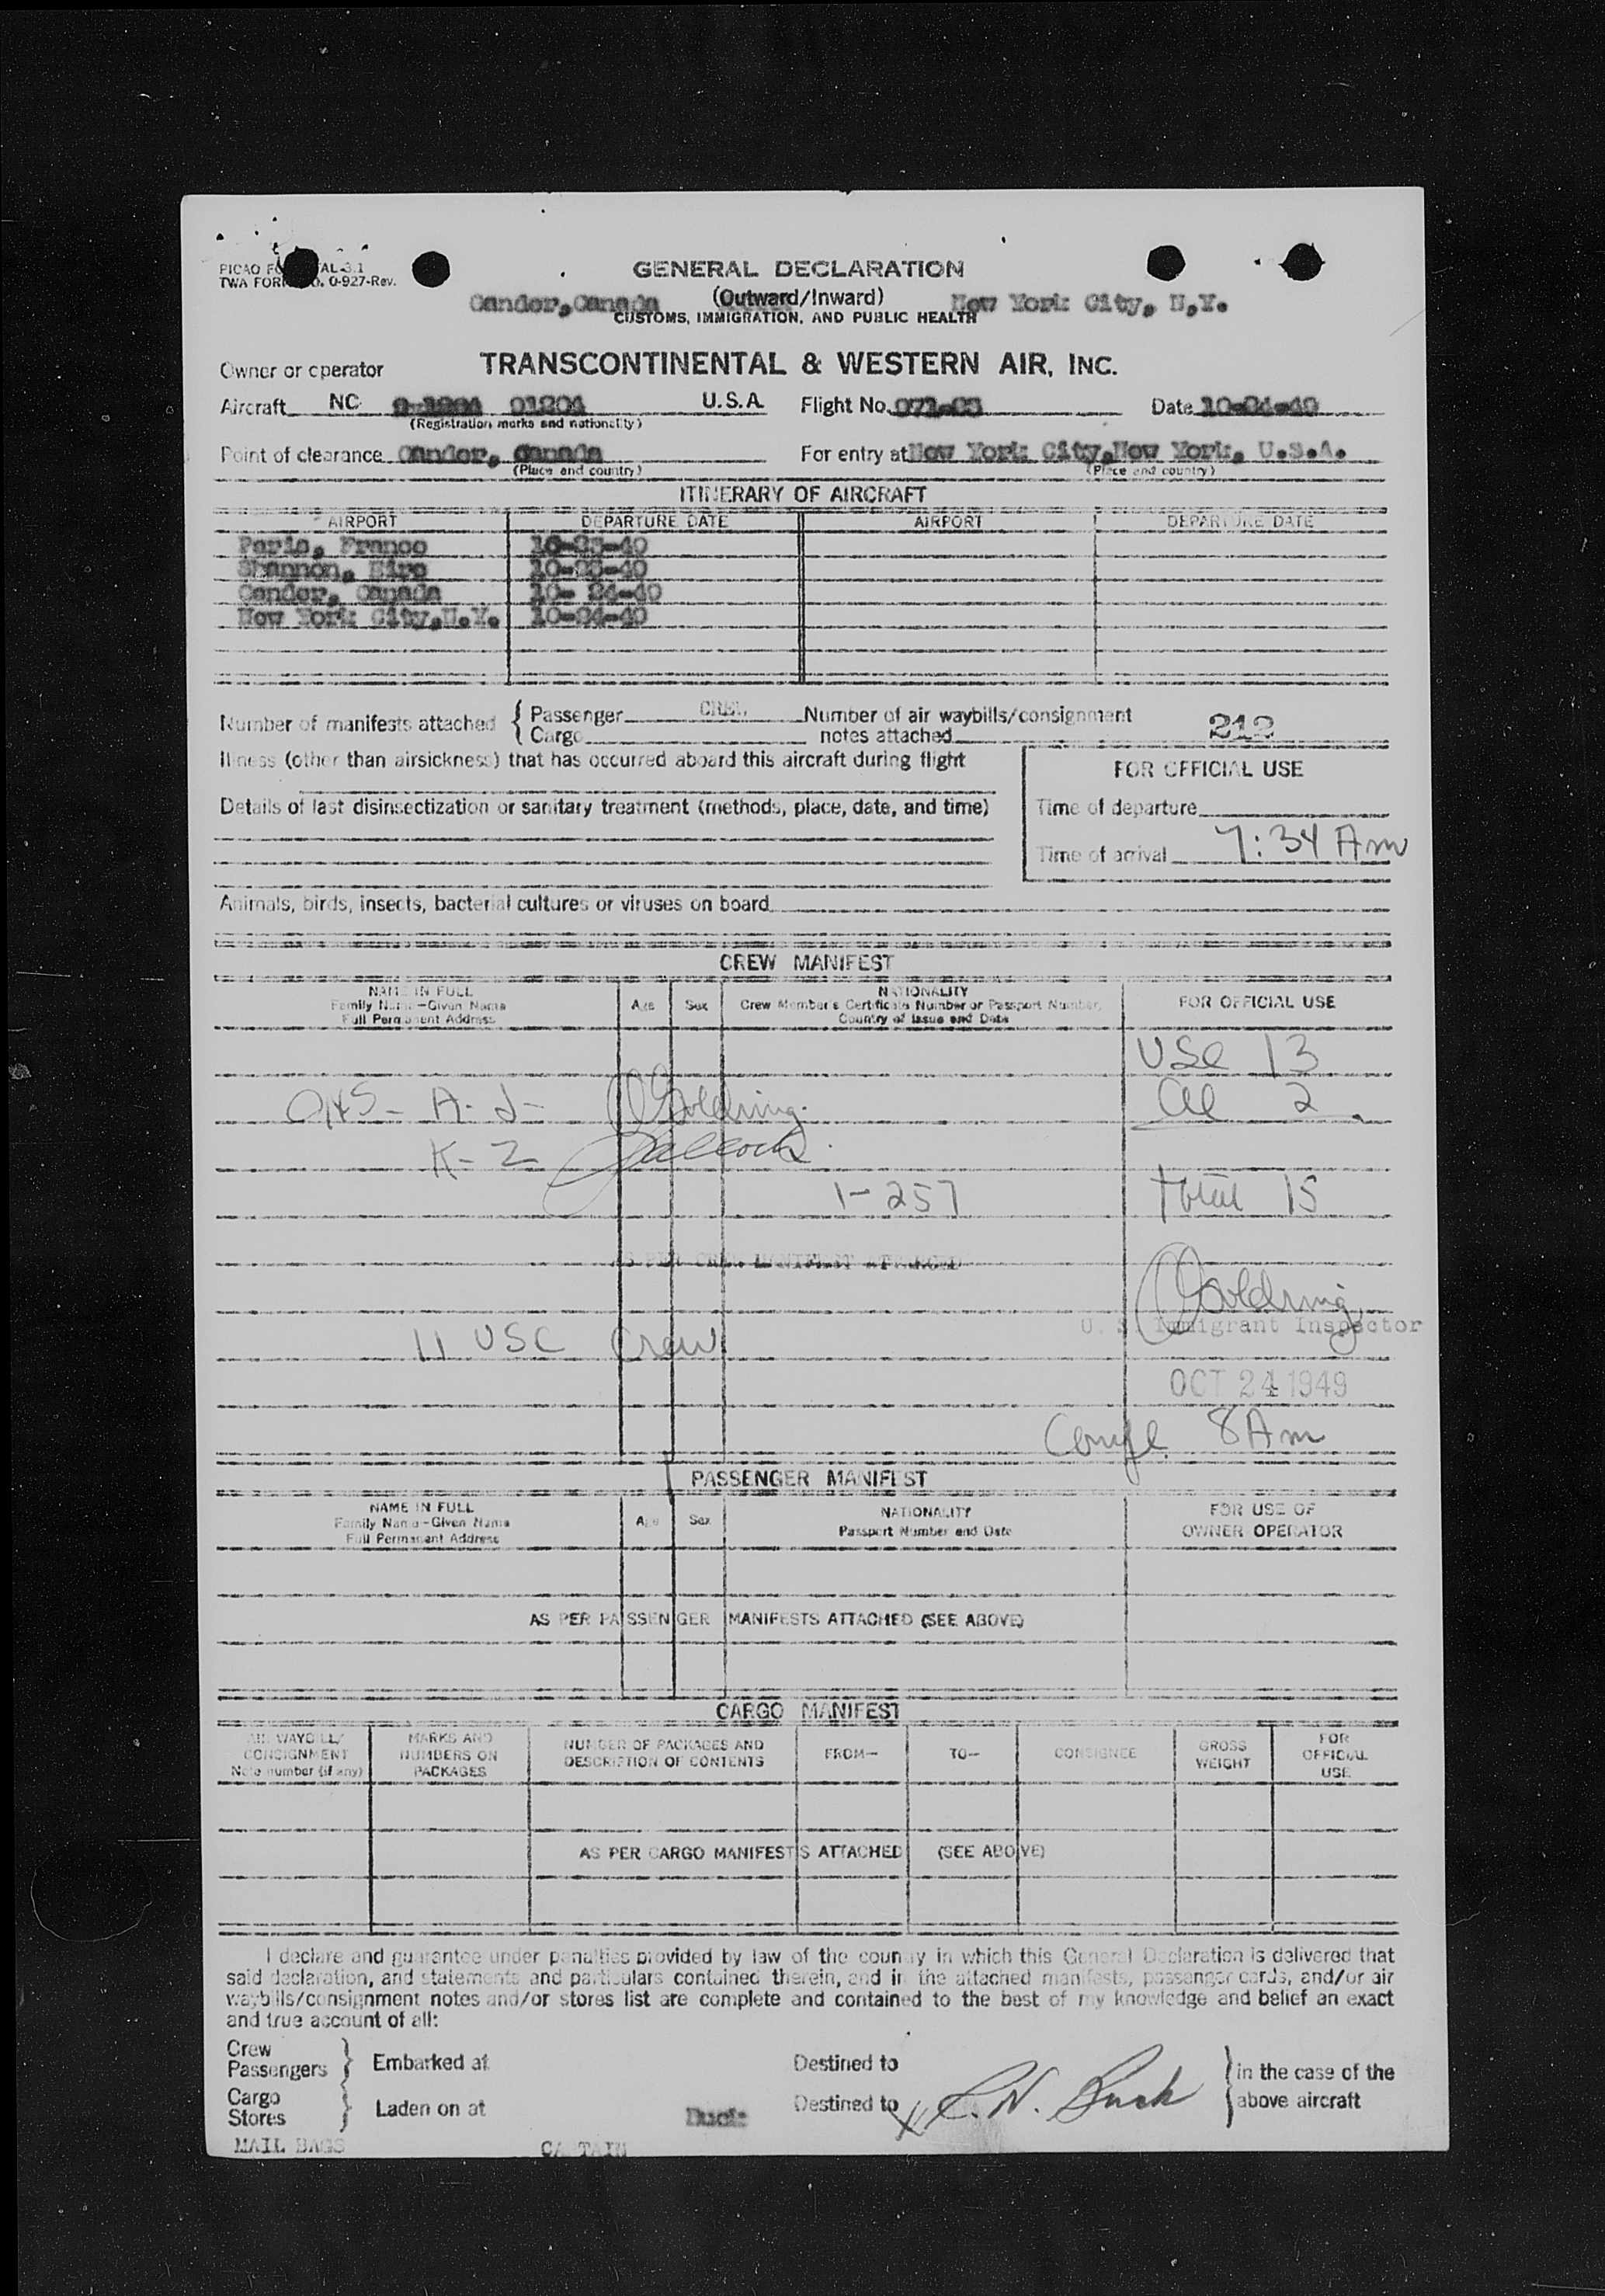 GENERAL DECLARATION
TWA FORM 0-927-Rev.
(Outward/Inward)
Gander, Canada New York City, N.Y.
CUSTOMS, IMMIGRATION, AND PUBLIC HEALTH
Owner or operator TRANSCONTINENTAL & WESTERN AIR, INC.
Aircraft NC 91204 U.S.A. Flight No. Date 10-24-49
(Registration marks and nationality)
Point of clearance Gander, Canada For entry at New York City, New York, U.S.A.
(Place and country) (Place and country)
ITINERARY OF AIRCRAFT
AIRPORT DEPARTURE DATE AIRPORT DEPARTURE DATE
Paris, France 10-23-49
Shannon, Eire 10-23-49
Gander, Canada 10- 24-49
New York City, N.Y. 10-24-49
Number of manifests attached { Passenger CREW Number of air waybills/consignment
Cargo notes attached 212
Illness (other than airsickness) that has occurred aboard this aircraft during flight
FOR OFFICIAL USE
Details of last disinsectization or sanitary treatment (methods, place, date, and time)
Time of departure
Time of arrival 7:34 Am
Animals, birds, insects, bacterial cultures or viruses on board
CREW MANIFEST
NAME IN FULL
Family Name-Given Name
Full Permanent Address
Age Sex
NATIONALITY
Crew Member's Certificate Number or Passport Number,
Country of Issue and Date
FOR OFFICIAL USE
USC 13
A-2- Goldring al 2
K-2
1-257 total 15
AS PER CREW MANIFEST ATTACHED
Goldring
U. S. Immigrant Inspector
11 USC Crew
OCT 24 1949
8 Am
PASSENGER MANIFEST
NAME IN FULL
Family Name-Given Name
Full Permanent Address
Age Sex
NATIONALITY
Passport Number and Date
FOR USE OF
OWNER OPERATOR
AS PER PASSENGER MANIFESTS ATTACHED (SEE ABOVE)
CARGO MANIFEST
AIR WAYBILL/
CONSIGNMENT
Note number (if any)
MARKS AND
NUMBERS ON
PACKAGES
NUMBER OF PACKAGES AND
DESCRIPTION OF CONTENTS
FROM-
TO-
CONSIGNEE
GROSS
WEIGHT
FOR
OFFICIAL
USE
AS PER CARGO MANIFESTS ATTACHED (SEE ABOVE)
I declare and guarantee under penalties provided by law of the country in which this General Declaration is delivered that
said declaration, and statements and particulars contained therein, and in the attached manifests, passenger cards, and/or air
waybills/consignment notes and/or stores list are complete and contained to the best of my knowledge and belief an exact
and true account of all:
Crew
Passengers } Embarked at Destined to } in the case of the
Cargo
Stores } Laden on at Buck Destined to above aircraft
MAIL BAGS CAPTAIN